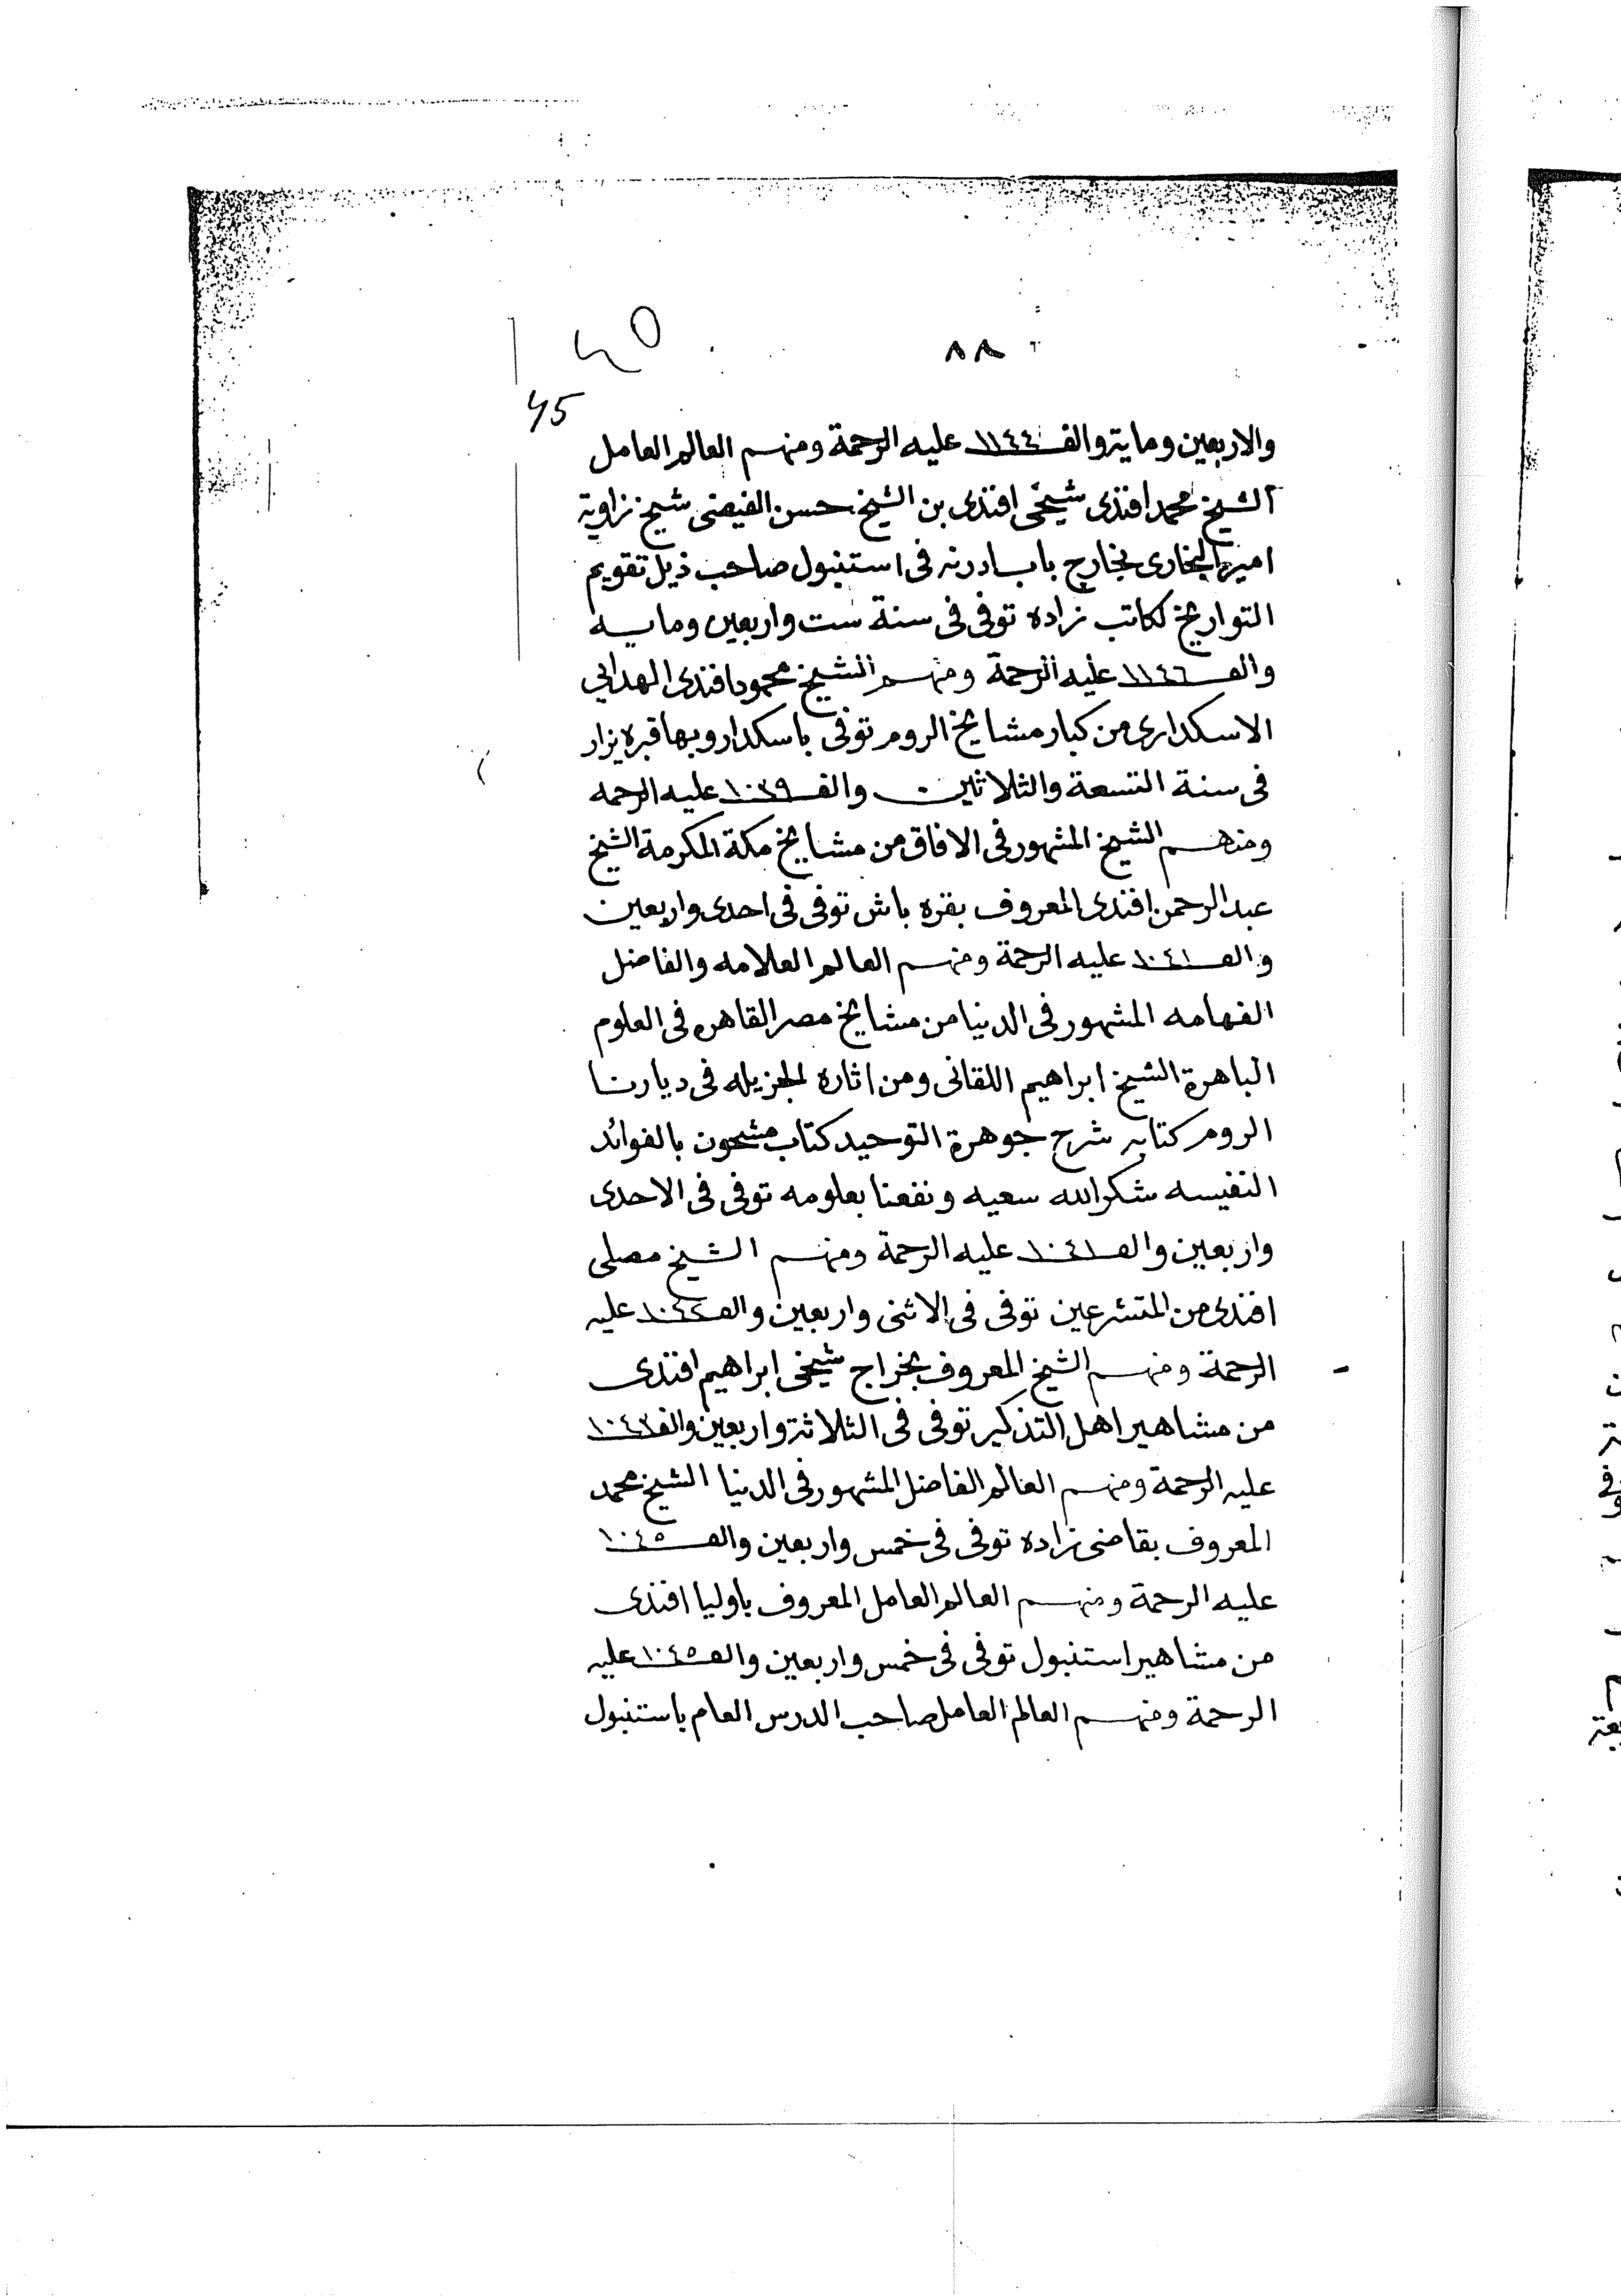 ٨٨
45
والاربعين وماية والف ١١٤٤ عليه الرحمة ومنهم العالم العامل
الشيخ محمد افندى شيخى افندى بن الشيخ حسن الفيضى شيخ زاوية
امير البخارى بخارج باب ادرنه فى استنبول صاحب ذيل تقويم
التواريخ لكاتب زاده توفى فى سنة ست واربعين ومايه
والف ١١٤٦ عليه الرحمة ومنهم الشيخ محمود افندى الهدايى
الاسكدارى من كبار مشايخ الروم توفى باسكدار وبها قبره يزار
فى سنة التسعة والثلاثين والف ١٠٣٩ عليه الرحمه
ومنهم الشيخ المشهور فى الافاق من مشايخ مكة المكرمة الشيخ
عبد الرحمن افندى المعروف بقره باش توفى فى احدى واربعين
والف ١٠٤١ عليه الرحمة ومنهم العالم العلامه والفاضل
الفهامه المشهور فى الدنيا من مشايخ مصر القاهره فى العلوم
الباهرة الشيخ ابراهيم اللقانى ومن اثاره الجزيله فى ديارنا
الروم كتابه شرح جوهرة التوحيد كتاب مشحون بالفوائد
النفيسه شكر الله سعيه ونفعنا بعلومه توفى فى الاحدى
واربعين والف ١٠٤١ عليه الرحمة ومنهم الشيخ مصلى
افندى من المتشرعين توفى فى الاثنى واربعين والف ١٠٤٢ عليه
الرحمة ومنهم الشيخ المعروف بخراج شيخى ابراهيم افندى
من مشاهير اهل التذكير توفى فى الثلاثة واربعين والف ١٠٤٣
عليه الرحمة ومنهم العالم الفاضل المشهور فى الدنيا الشيخ محمد
المعروف بقاضى زاده توفى فى خمس واربعين والف ١٠٤٥
عليه الرحمة ومنهم العالم العامل المعروف باوليا افندى
من مشاهير استنبول توفى فى خمس واربعين والف ١٠٤٥ عليه
الرحمة ومنهم العالم العامل صاحب الدرس العام باستنبول